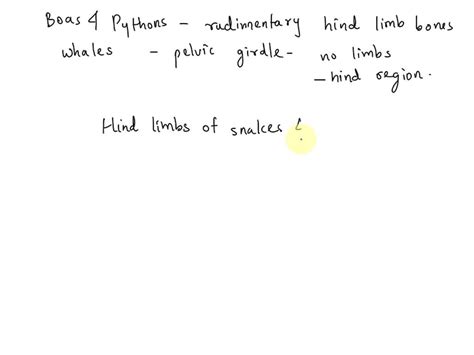 Boas & Pythons - rudimentary hind limb bones
whales - pelvic girdle - no limbs
- hind region.
Hind limbs of snakes &